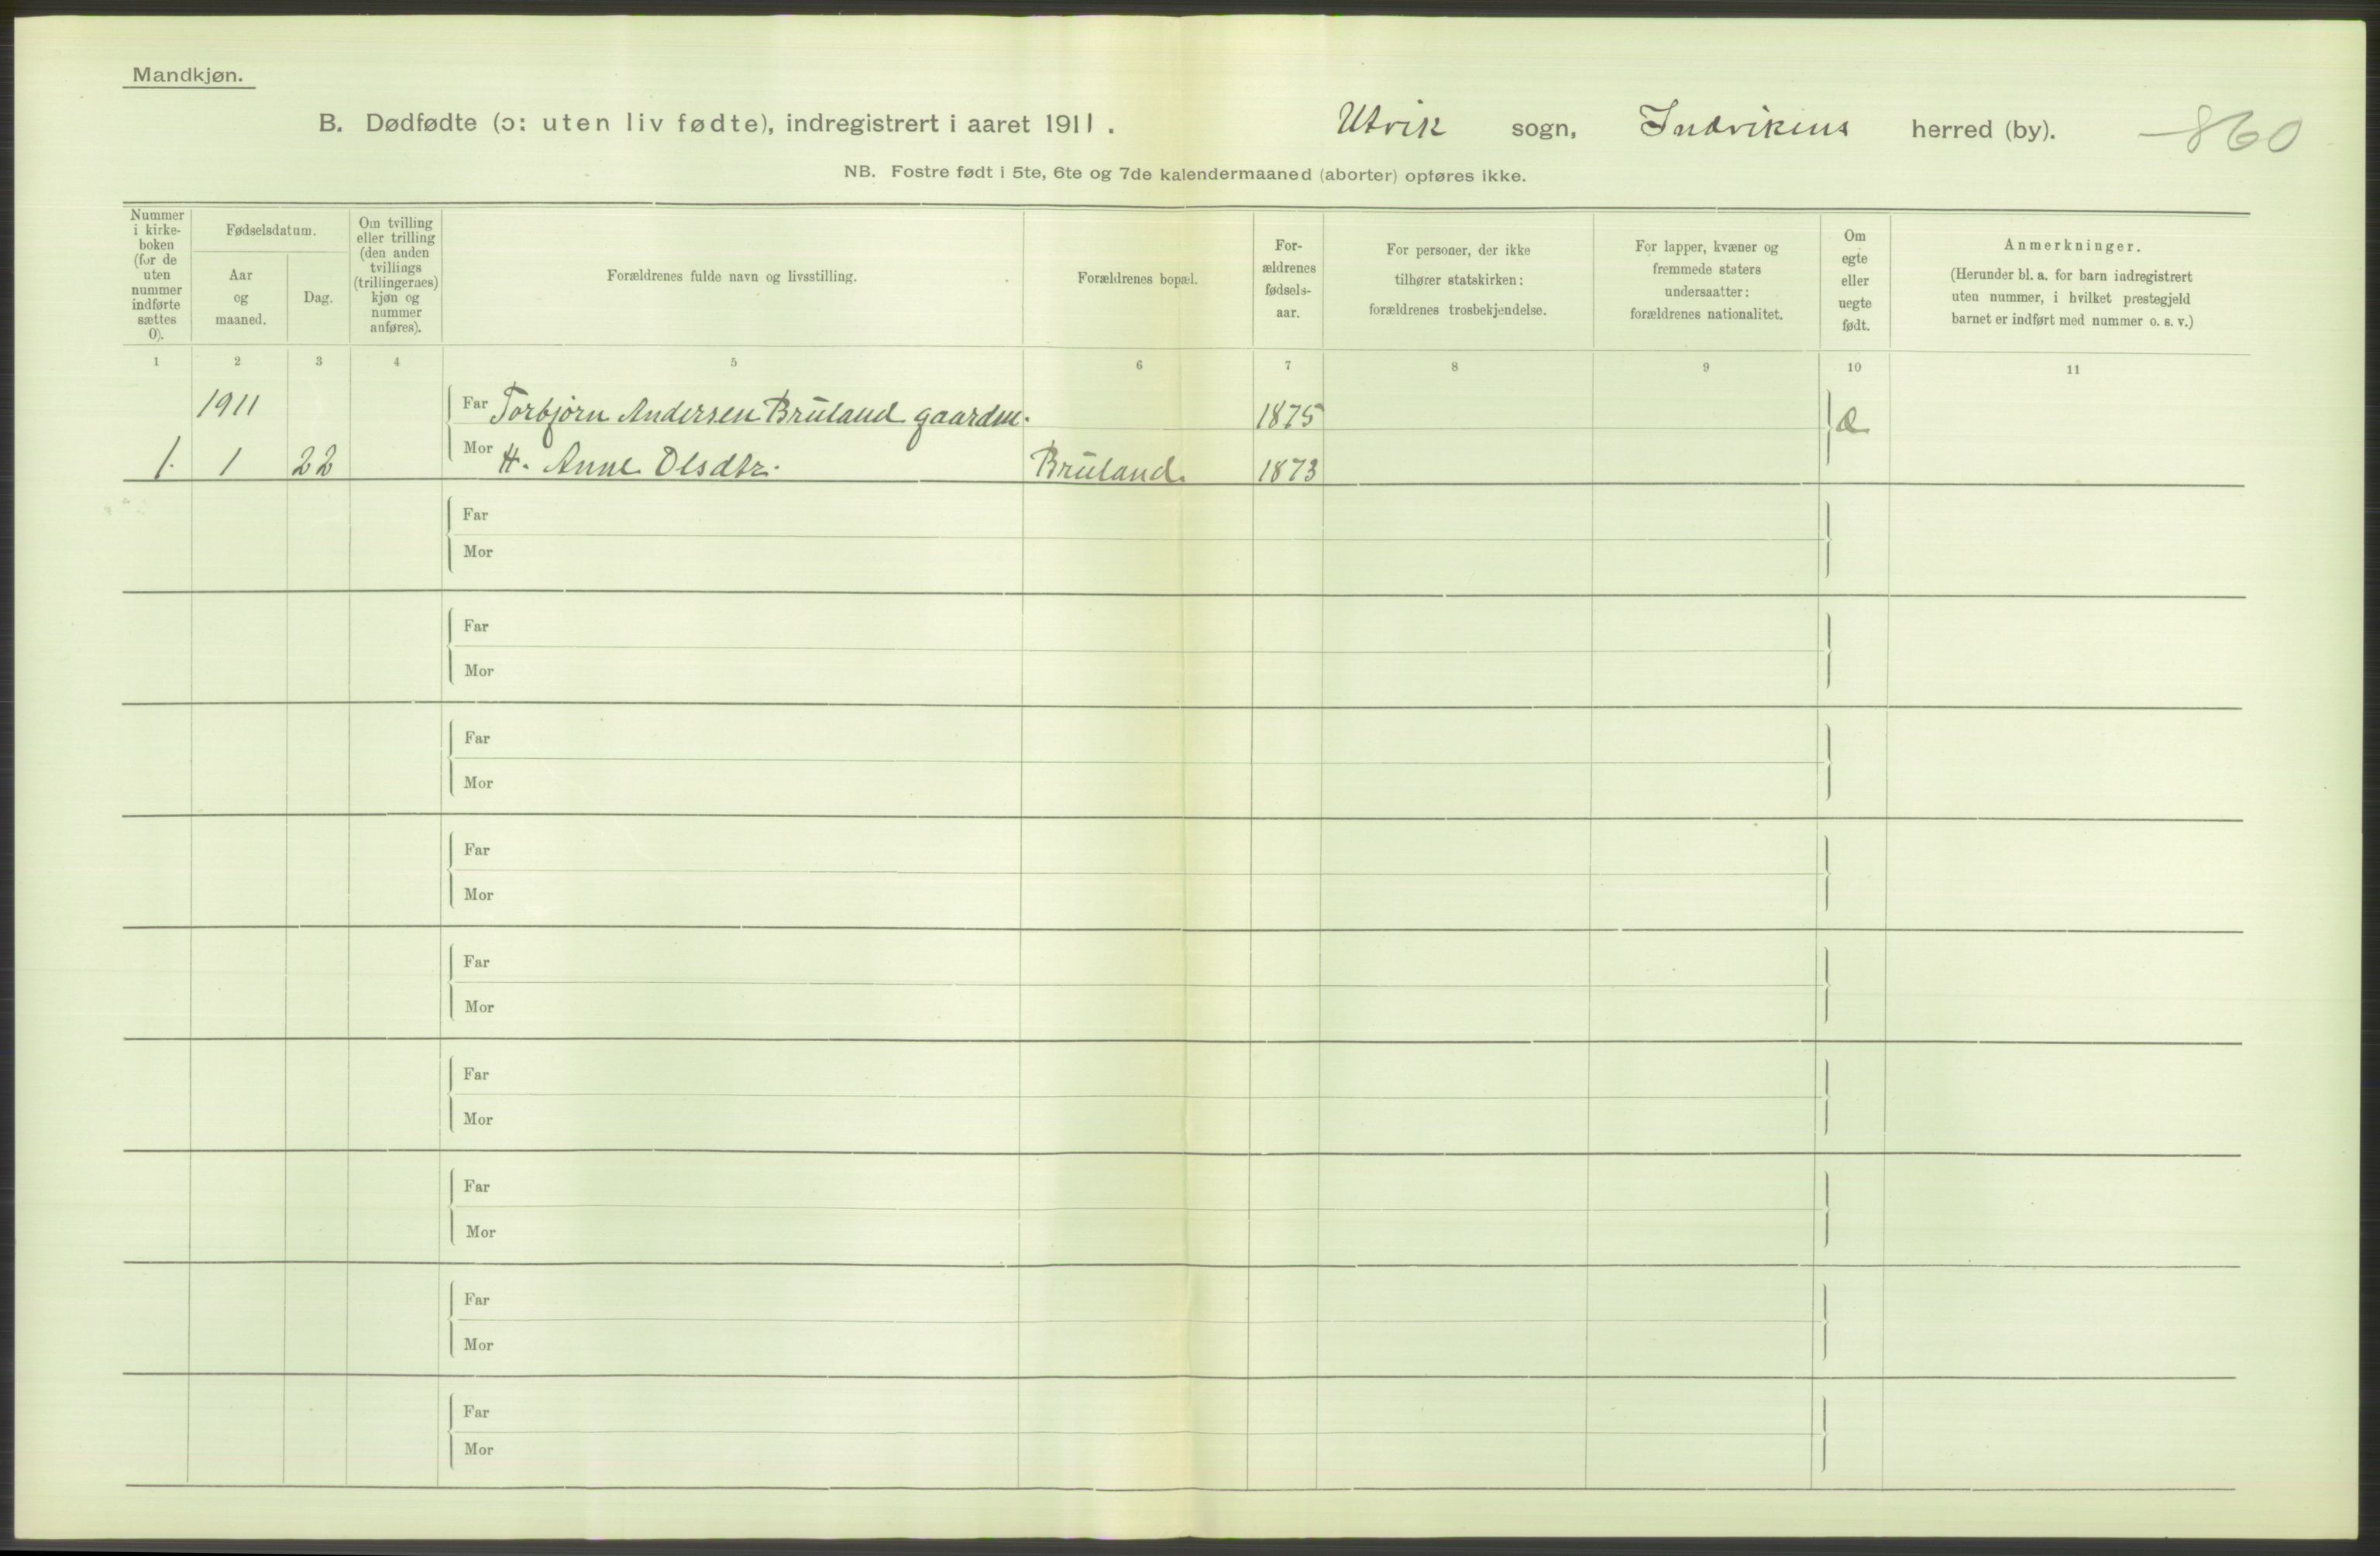 Mandkjøn.
B. Dødfødte (ɔ: uten liv fødte), indregistrert i aaret 1911. Utvik sogn, Indvikens herred (by). 860
NB. Fostre født i 5te, 6te og 7de kalendermaaned (aborter) opføres ikke.
Nummer
i kirke-
boken
(for de
uten
nummer
indførte
sættes
0).
Fødselsdatum.
Aar
og
maaned.
Dag.
Om tvilling
eller trilling
(den anden
tvillings
(trillingernes)
kjøn og
nummer
anføres).
Forældrenes fulde navn og livsstilling.
Forældrenes bopæl.
For-
ældrenes
fødsels-
aar.
For personer, der ikke
tilhører statskirken:
forældrenes trosbekjendelse.
For lapper, kvæner og
fremmede staters
undersaatter:
forældrenes nationalitet.
Om
egte
eller
uegte
født.
Anmerkninger.
(Herunder bl. a. for barn indregistrert
uten nummer, i hvilket prestegjeld
barnet er indført med nummer o. s. v.)
1 2 3 4 5 6 7 8 9 10 11
1911 Far Torbjørn Andersen Bruland gaardm. 1875 Æ
1. 1 22 Mor H. Anne Olsdtr. Bruland. 1873
Far
Mor
Far
Mor
Far
Mor
Far
Mor
Far
Mor
Far
Mor
Far
Mor
Far
Mor
Far
Mor